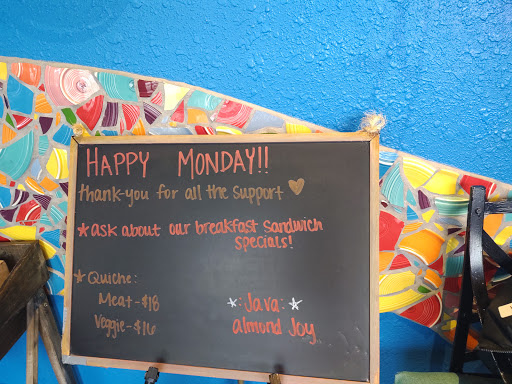 HAPPY MONDAY!!
thank-you for all the support ♥
★ask about our breakfast sandwich
specials!
★Quiche:
Meat-$18
Veggie-$16
★:Java:★
almond Joy